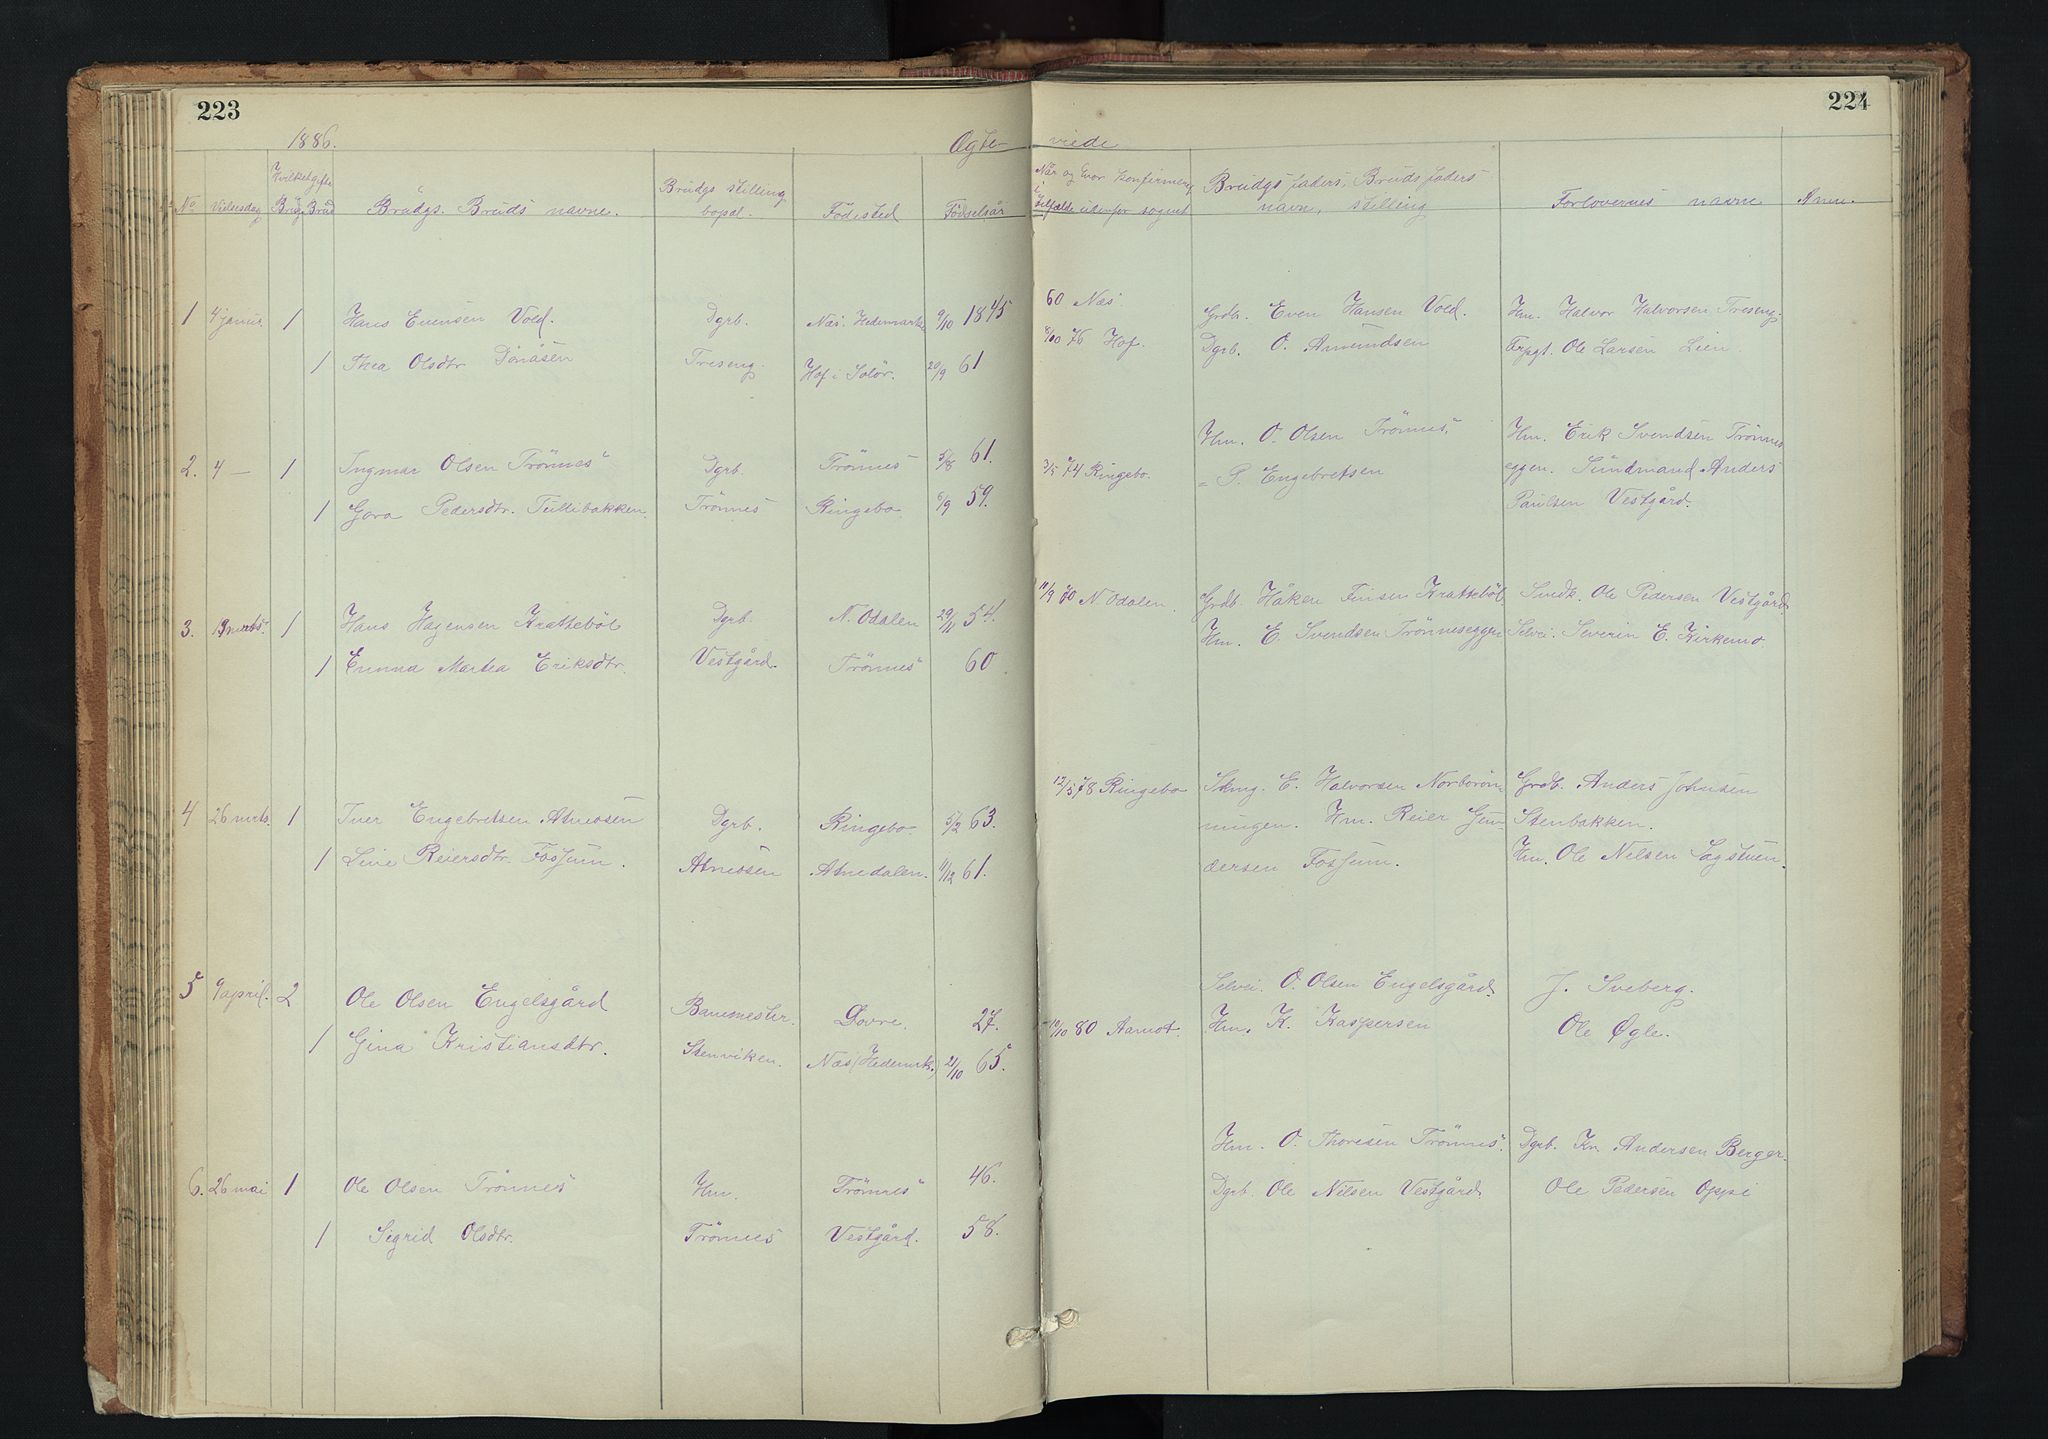 223
1886.
Ægte-
No
Vielsesdag
Hvilket gifte
Brudg.
Brud
Brudgs. Bruds navne.
Brudgs stilling
bopæl.
Födested
Födselsår
1 4 januar. 1 Hans Evensen Vold. Dgrb. Næs. Hedemark 9/10 1845
1 Thea Olsdtr Dönåsen Treseng. Hof i Solör. 20/9 61
2. 4 — 1 Ingmar Olsen Trönnes Dgrb. Trönnes 5/8 61.
1 Gora Pedersdtr. Tullibakken. Trönnes Ringebo. 6/9 59.
3. mrts. 1 Hans Hagensen Kratteböl Dgrb. N. Odalen 29/11 54.
1 Emma Martea Eriksdtr. Vestgård. Trönnes 60
4 26 mrts. 1 Iver Engebretsen Atneosen Dgrb. Ringebo. 5/2 63.
1 Line Reiersdtr. Fossum. Atneosen Atnedalen. 11/12 61.
5 9 april. 2 Ole Olsen Engelsgård Banemester. Dovre. 27.
1 Gina Kristiansdtr. Stenviken. Næs (Hedemrk.) 21/10 65.
6. 26 mai 1 Ole Olsen Trönnes Hm. Trönnes 46.
1 Sigrid Olsdtr. Trönnes Vestgård. 58.
224
viede
Når og hvor konfirmeret
i tilfælde udenfor sognet
Brudgs faders, Bruds faders
navn, stilling
Forlovernes navne
Anm.
60 Næs. Grdbr. Even Hansen Vold. Hm. Halvor Halvorsen Treseng.
76 Hof. Dgrb. O. Amundsen Ole Larsen Lien.
Hm. O. Olsen Trönnes. Hm. Erik Svendsen Trönnes
3/5 74 Ringebo. = P. Engebretsen eggen. Sundmand Anders
Paulsen Vestgård.
11/9 70 N. Odalen. Grdb. Håken Finsen Kratteböl Sundk. Ole Pedersen Vestgård
Hm. E. Svendsen Trönneseggen Selvei. Severin E. Kirkemo
12/5 78 Ringebo E. Halvorsen Norbrön- Grdb. Anders Johnsen
ningen. Hm. Reier Gun- Stenbakken.
dersen Fossum. Hm. Ole Nilsen Sagstuen.
Selvei. O. Olsen Engelsgård. J. Sveberg.
10/10 80 Aamot. Hm. K. Kaspersen Ole Øgle.
Hm. O. Thoresen Trönnes. Dgrb. Kr. Andersen Berger.
Dgrb. Ole Nilsen Vestgård Ole Pedersen Oppi